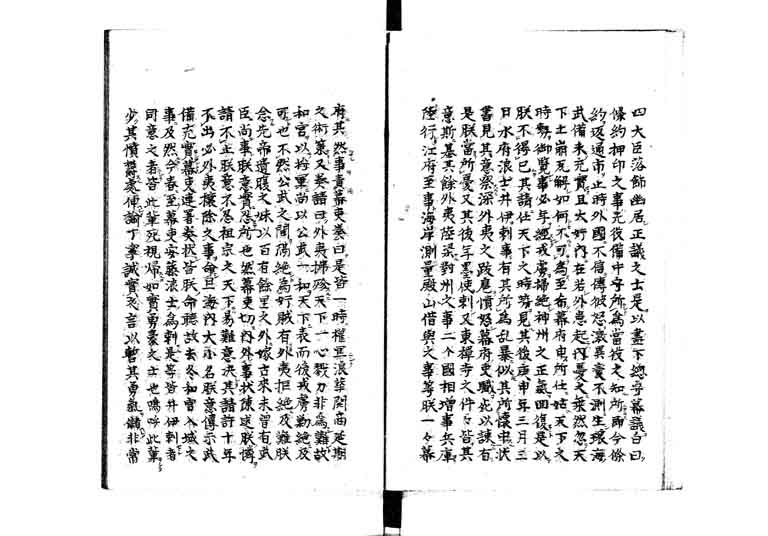 四大臣落飾幽居正議之士是以盡下總守幕議白曰
條約押印之事先役備中守所為當役之知所即今條
約返通市止時外國不信傳彼怒滾異變不測生環海
武備未充實且大奸內在若外患起內憂之乗然忽天
下土崩瓦解如何不可為至有幕府申所任姑天下之
時勢御覽事必与經戎虜掃絕神州之正氣回復是以
朕不得已其請任天下之時勢見其後庚申年三月三
日水府浪士井伊刺事有其所為乱暴似其所懷中状
書見其意祭深外夷之跋扈憤怒幕府吏職死以諌有
是朕當所憂又其後年墨使刺又東禅寺之件々皆其
意斯基其餘外夷陸梁對州之事二个國相增事兵庫
陸行江府至事海岸測量殿山借與之事等朕一々幕
府其然事責幕吏奏曰是皆一時權宜浪華開商延期
之術策又英諸曰外夷掃殄天下一心戮力非為難故
和宮以拵巣尚以公武一和天下表而後戎虜勤絶及
可也不然公武之間隔絶為奸賊有外夷拒絶及難朕
念先帝遺腹之妹以百有餘里之外嫁古来未曽有武
臣尚事朕意實忍所也然幕吏切內外事狀陳述朕懐
請不止朕意不忍祖宗之天下易難意决其請許十年
不出必外夷攘除之事命且海內大小名朕意傳示武
備充實幕吏連署奏状皆朕命聽故去冬和宮入城之
事及然今春至幕吏安藤浪士為刺是等皆井伊刺者
同意之者皆此輩死視帰如實勇豪之士也嗚呼此輩
少其憤欝處使諭丁寧誠實之言以暫其勇氣儲非常